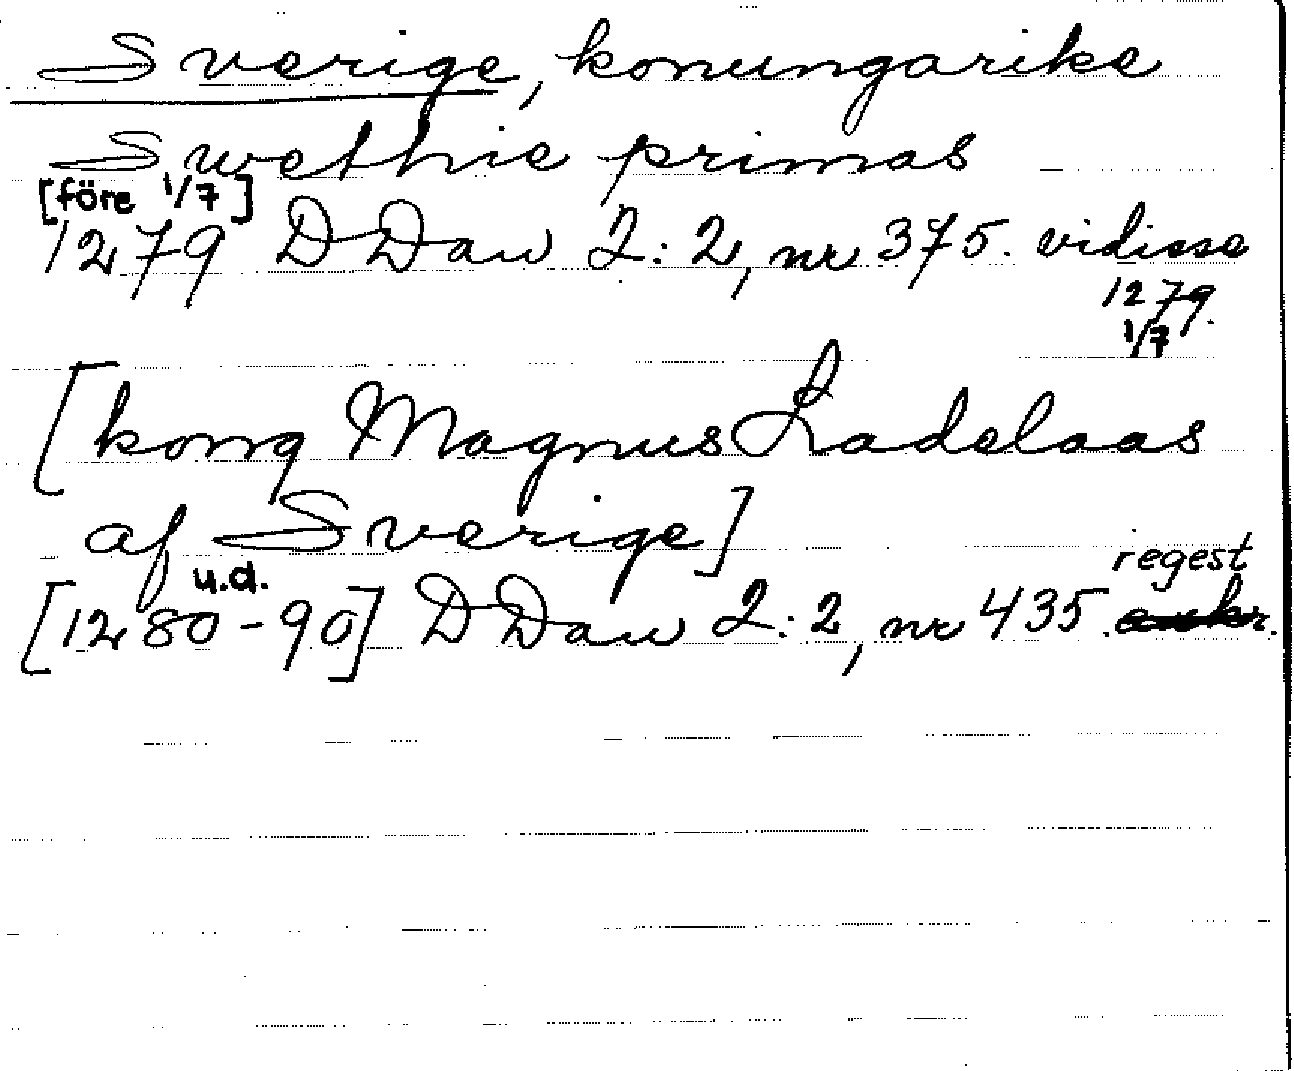 Sverige, konungarike
Swethie primas
[före 1/7]
1279 DDan 2:2, nr 375. vidisse
1279
1/7
[kong Magnus Ladelaas
af Sverige]
u.d. regest
[1280-90] DDan 2:2, nr 435.